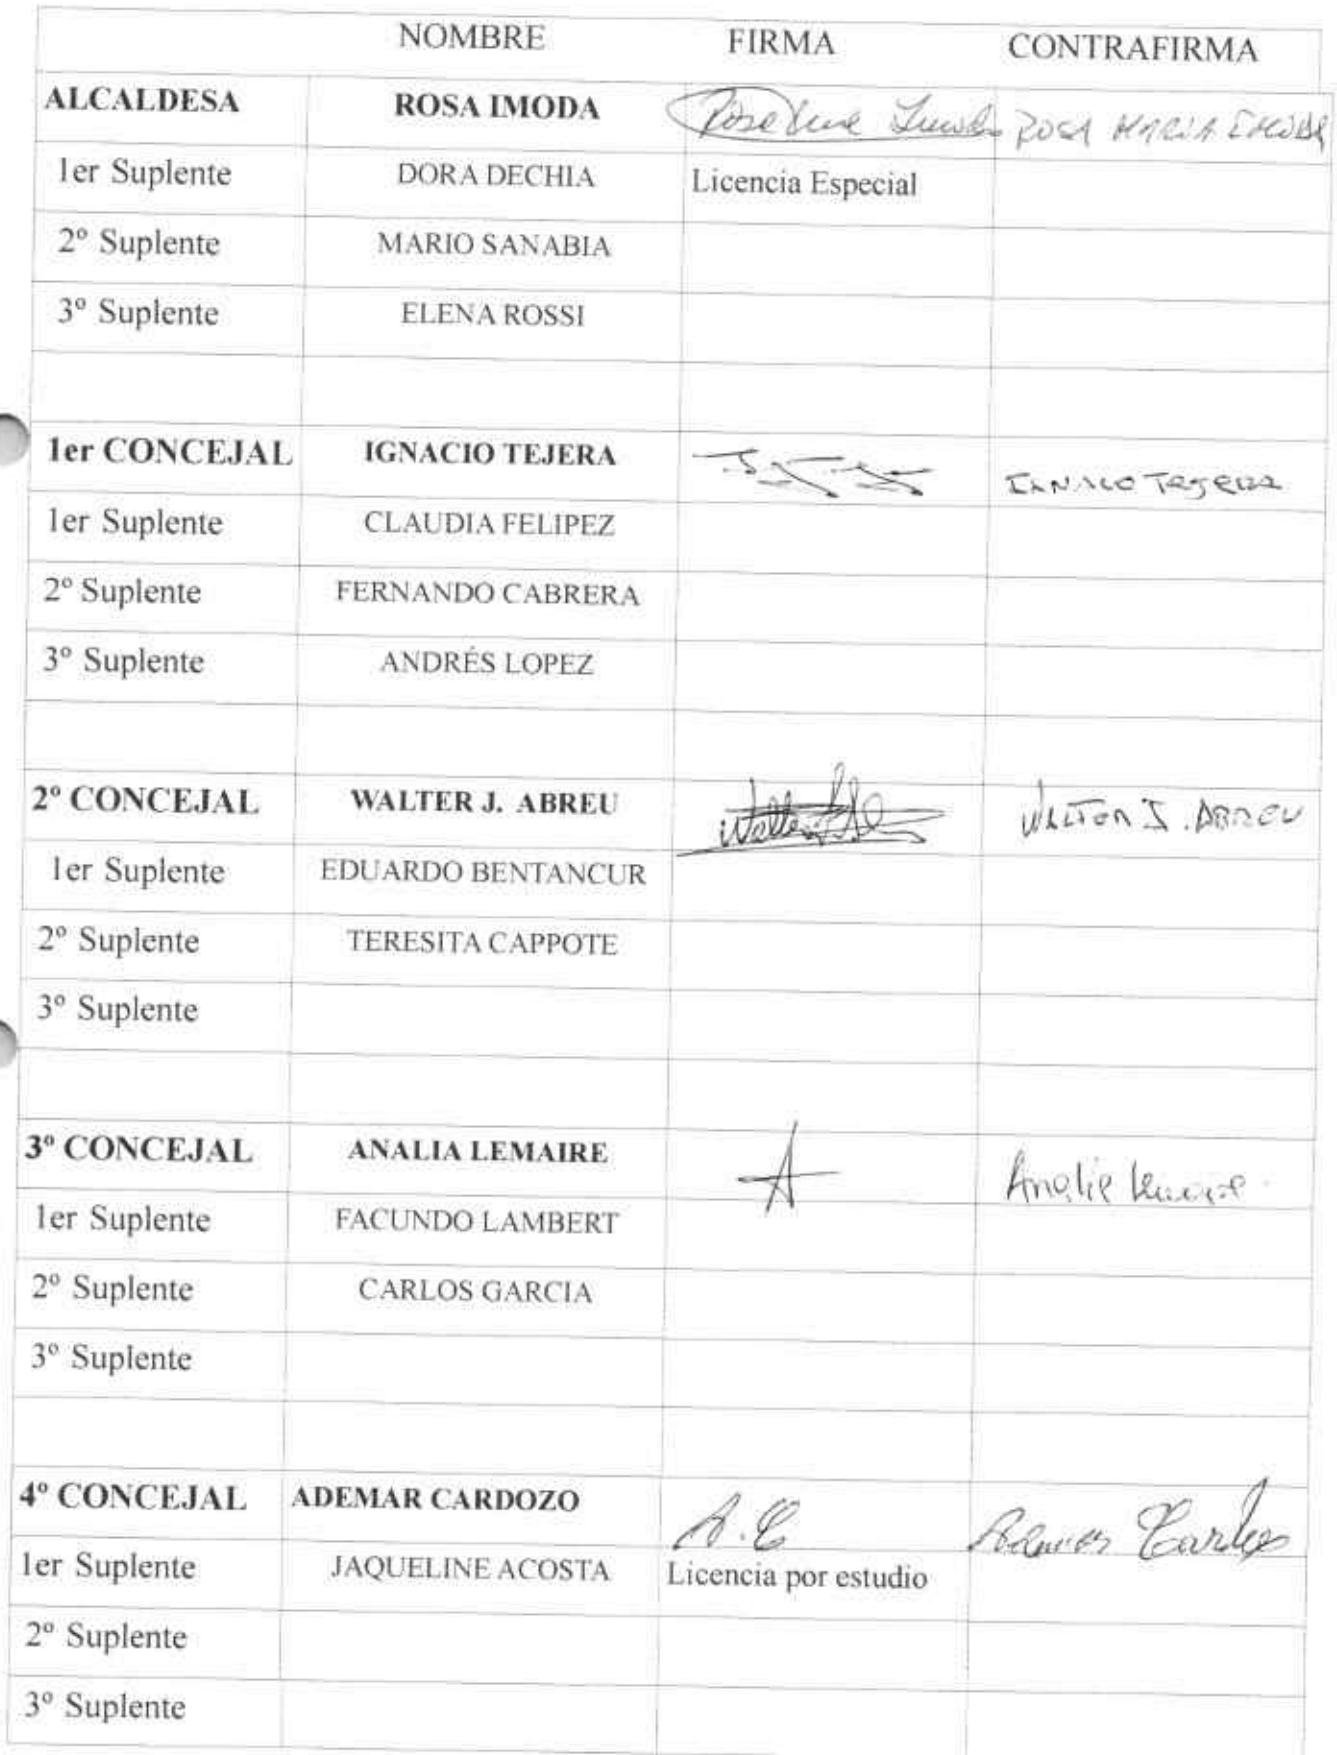 NOMBRE FIRMA CONTRAFIRMA
ALCALDESA ROSA IMODA ROSA MARIA IMODA
1er Suplente DORA DECHIA Licencia Especial
2º Suplente MARIO SANABIA
3º Suplente ELENA ROSSI
1er CONCEJAL IGNACIO TEJERA IGNACIO TEJERA
1er Suplente CLAUDIA FELIPEZ
2º Suplente FERNANDO CABRERA
3º Suplente ANDRÉS LOPEZ
2º CONCEJAL WALTER J. ABREU WALTER J. ABREU
1er Suplente EDUARDO BENTANCUR
2º Suplente TERESITA CAPPOTE
3º Suplente
3º CONCEJAL ANALIA LEMAIRE A Analie Lemaire
1er Suplente FACUNDO LAMBERT
2º Suplente CARLOS GARCIA
3º Suplente
4º CONCEJAL ADEMAR CARDOZO A.C Ademar Cardozo
1er Suplente JAQUELINE ACOSTA Licencia por estudio
2º Suplente
3º Suplente